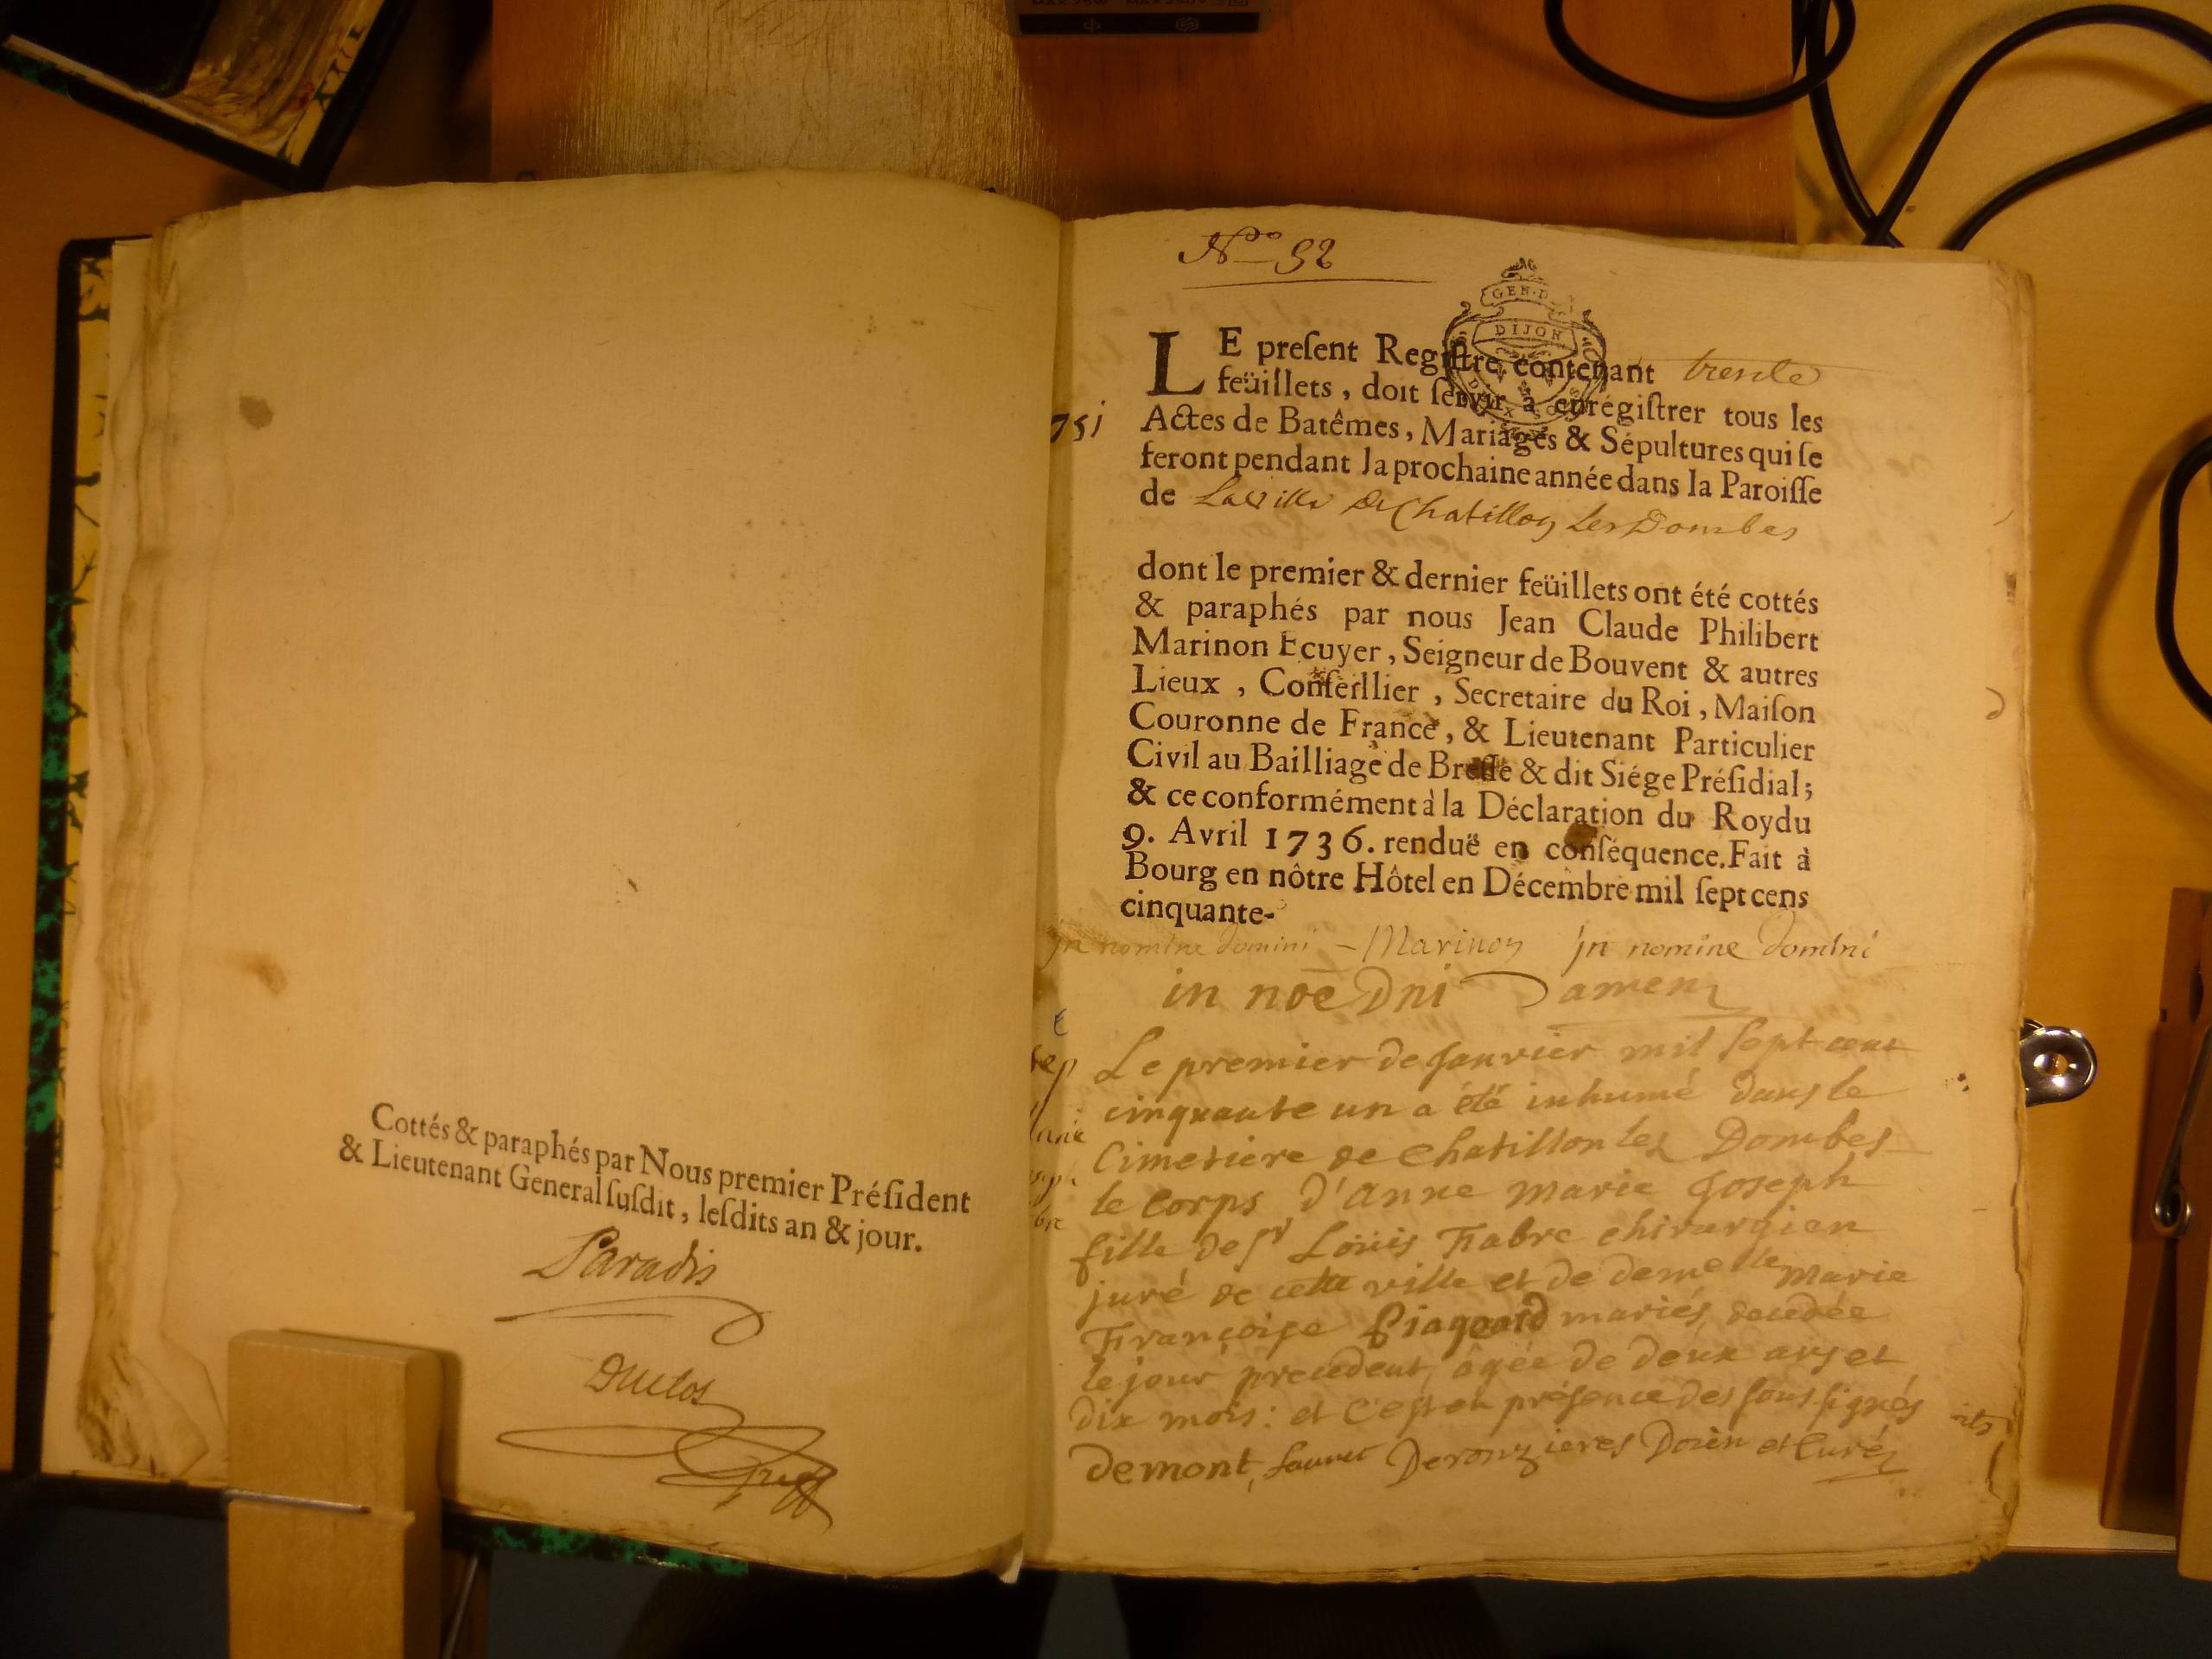 Cottés & paraphés par Nous premier Préſident
& Lieutenant General ſuſdit, leſdits an & jour.
Paradis
Duclos
Greff
N.º 92
GEN. D
DIJON
LE preſent Regiſtre contenant trente
feüillets, doit ſervir à enrégiſtrer tous les
751
Actes de Batêmes, Mariages & Sépultures qui ſe
feront pendant la prochaine année dans la Paroiſſe
de La ville de Chatillon Les Dombes
dont le premier & dernier feüillets ont été cottés
& paraphés par nous Jean Claude Philibert
Marinon Ecuyer, Seigneur de Bouvent & autres
Lieux, Conſeillier, Secretaire du Roi, Maiſon
Couronne de France, & Lieutenant Particulier
Civil au Bailliage de Breſſe & dit Siége Préſidial;
& ce conformément à la Déclaration du Roy du
9. Avril 1736. renduë en conſéquence. Fait à
Bourg en nôtre Hôtel en Décembre mil ſept cens
cinquante-
jn nomine domini - Marinon jn nomine domini
in noe Dni amen
Le premier de Janvier mil sept cent
cinquante un a été inhumé dans le
Cimetiere de Chatillon les Dombes
le corps d'anne marie Joseph
fille de sr Loüis Fabre chirurgien
juré de cette ville et de demelle marie
Françoise mariés, decedée
le jour precedent, âgée de deux ans et
dix mois: et c'est en présence des sous signés
demont, Deronzieres Doïen et Curé